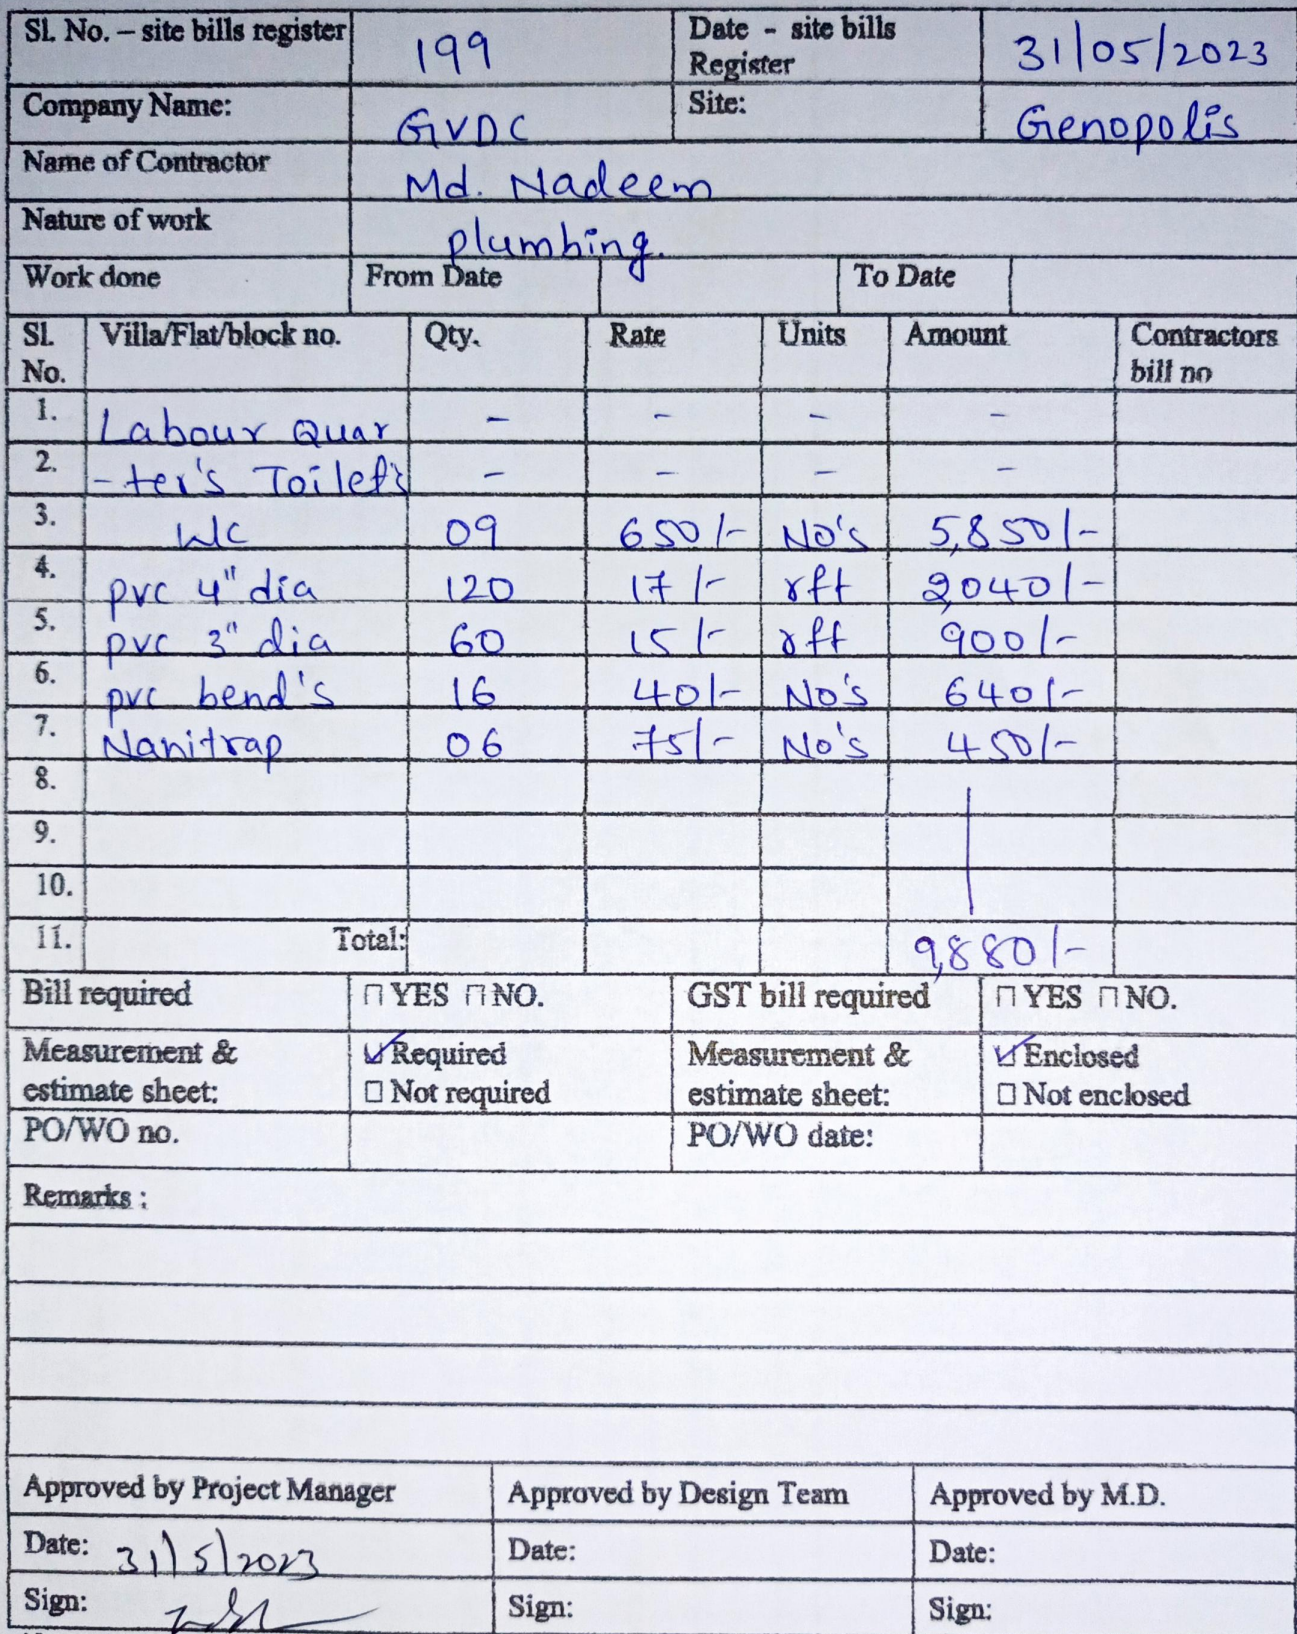 Sl. No. – site bills register 199 Date - site bills Register 31/05/2023
Company Name: GVDC Site: Genopolis
Name of Contractor Md. Nadeem
Nature of work plumbing.
Work done From Date To Date
Sl. No. Villa/Flat/block no. Qty. Rate Units Amount Contractors bill no
1. Labour Quar - - - -
2. -ter's Toilet's - - - -
3. W/c 09 650/- No's 5,850/-
4. pvc 4" dia 120 17/- rft 2,040/-
5. pvc 3" dia 60 15/- rft 900/-
6. pvc bend's 16 40/- No's 640/-
7. Nanitrap 06 75/- No's 450/-
8.
9.
10.
11. Total: 9,880/-
Bill required YES NO. GST bill required YES NO.
Measurement & estimate sheet: ☑ Required ☐ Not required Measurement & estimate sheet: ☑ Enclosed ☐ Not enclosed
PO/WO no. PO/WO date:
Remarks :
Approved by Project Manager Approved by Design Team Approved by M.D.
Date: 31/5/2023 Date: Date:
Sign: Sign: Sign: